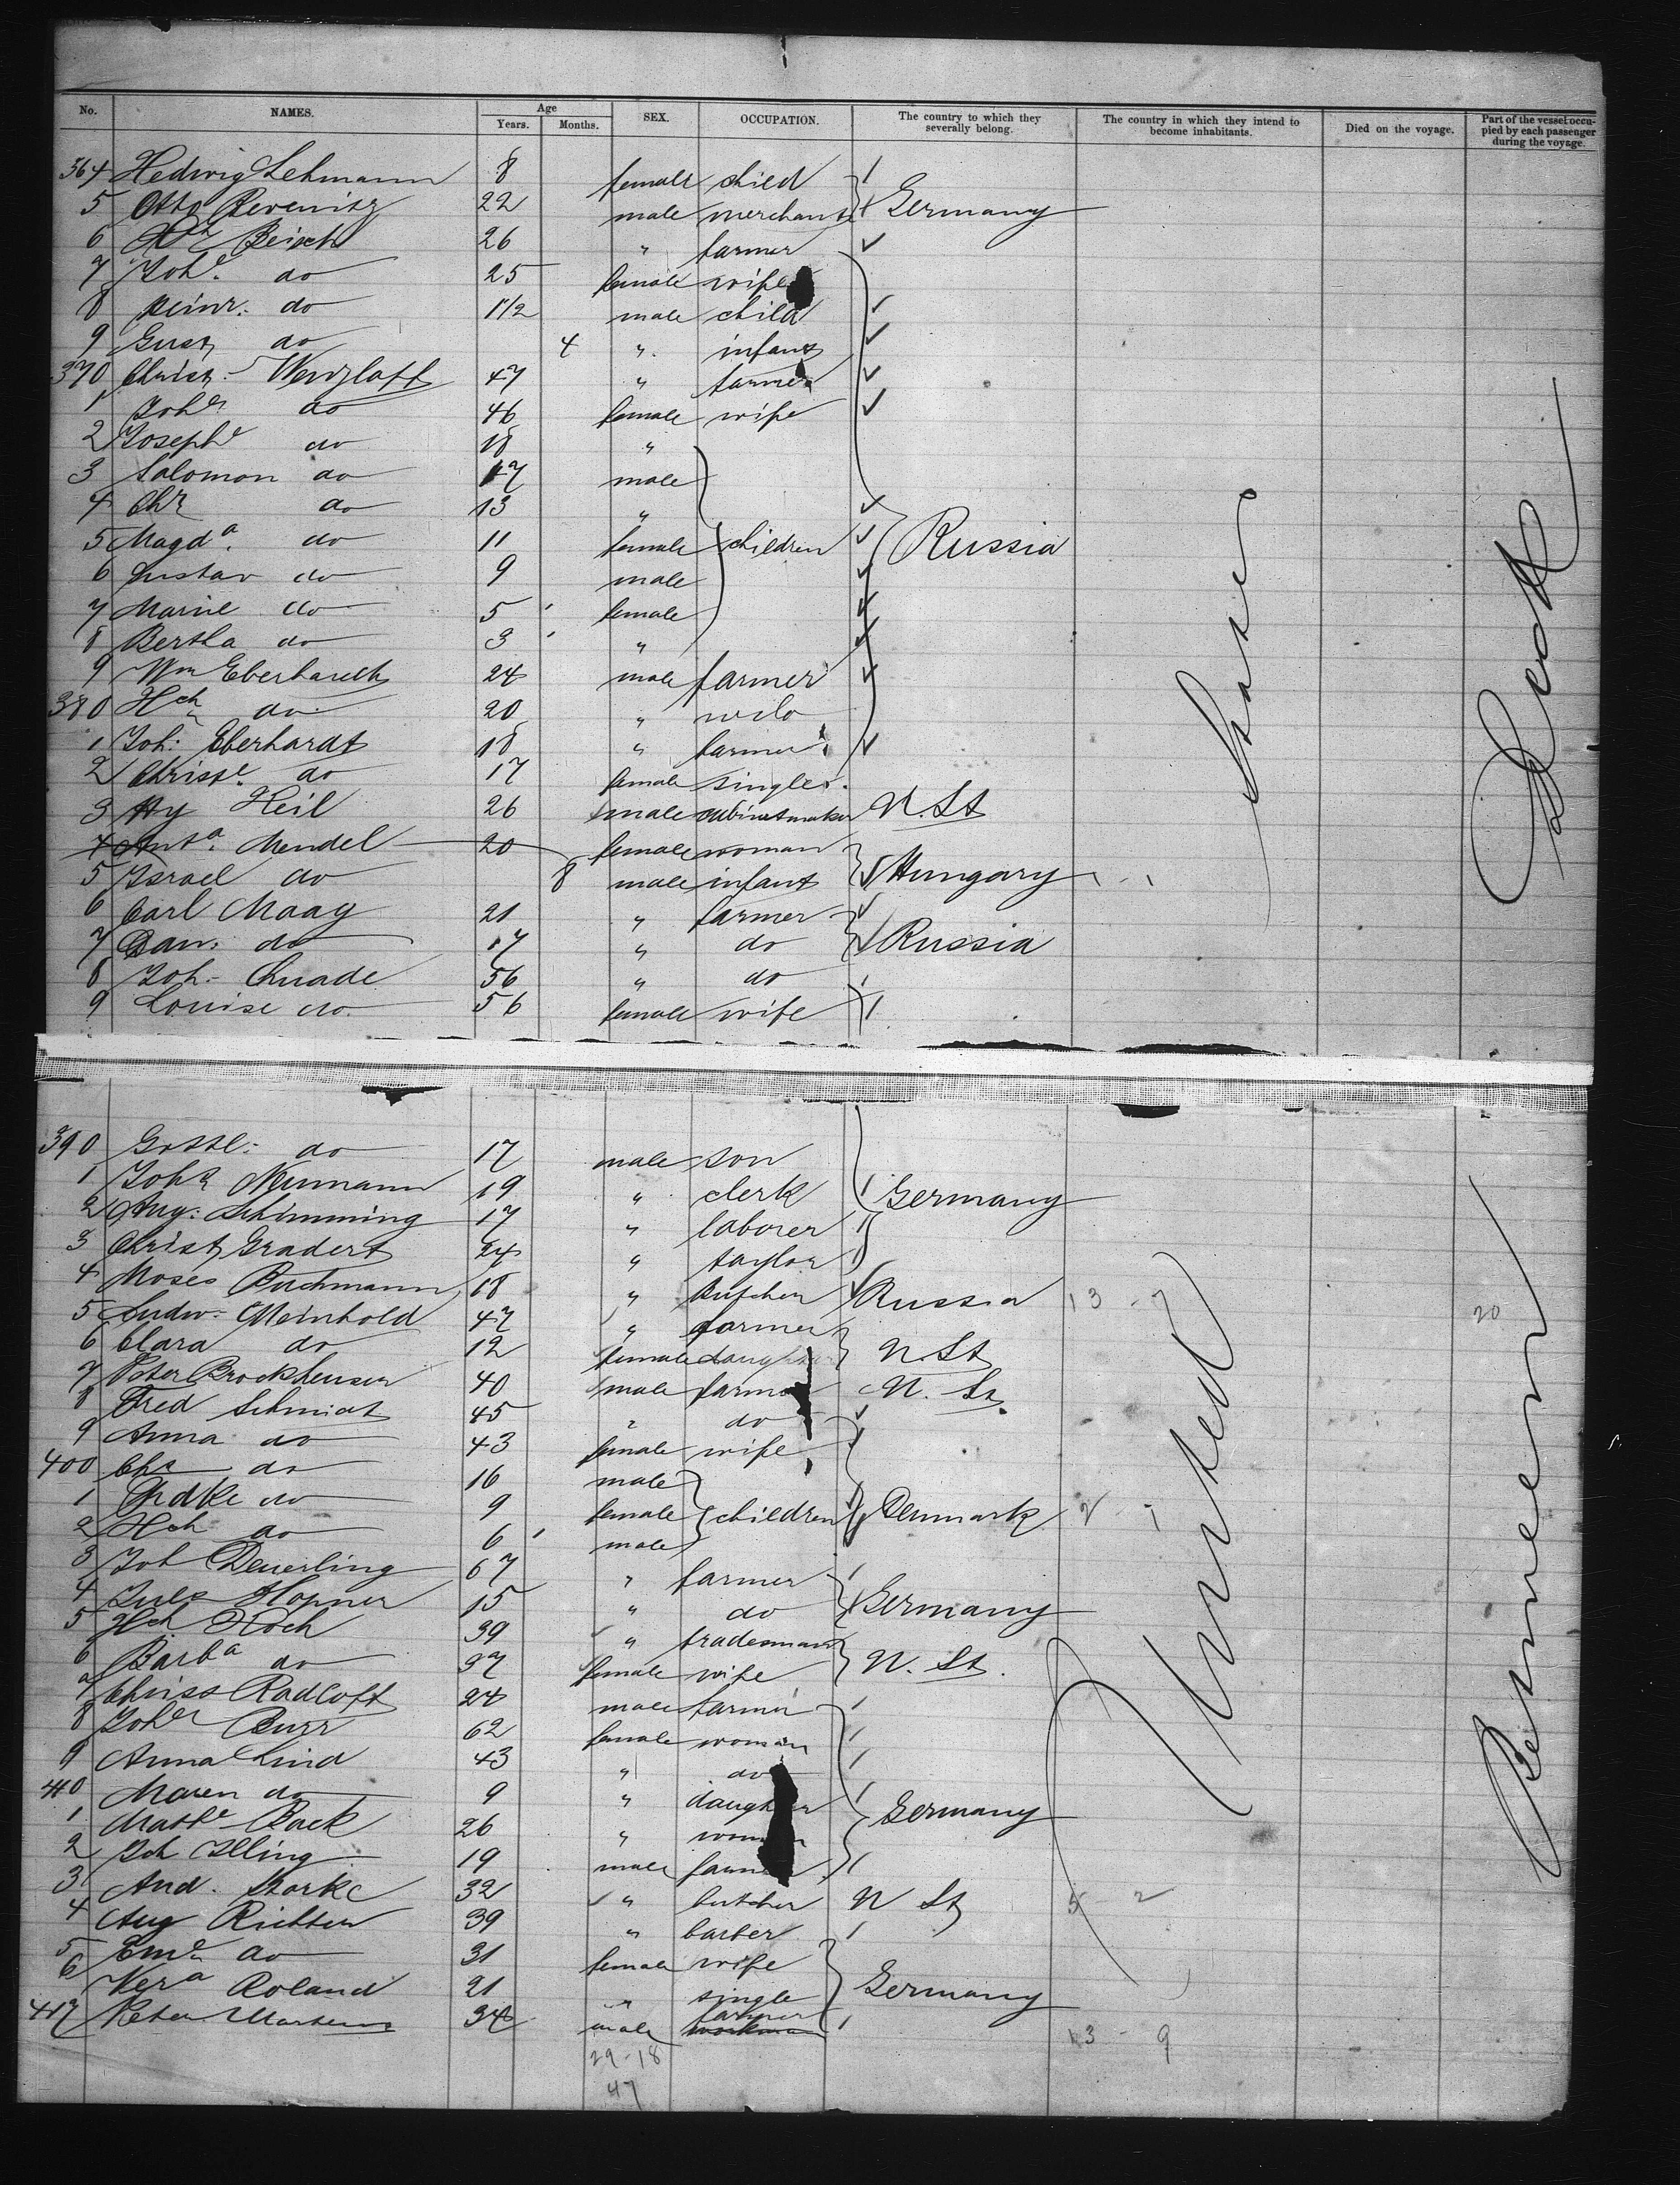 No. NAMES. Age Years. Months. SEX. OCCUPATION. The country to which they severally belong. The country in which they intend to become inhabitants. Died on the voyage. Part of the vessel occupied by each passenger during the voyage.
364 Hedwig Lehmann 8 female child
5 Otto 22 male merchant Germany
6 Beisch 26 " farmer
7 Johe do 25 female wife
8 Heinr. do 1 1/2 male child
9 Gust do 4 " infant
370 Christ. Wentzlaff 47 " farmer
1 Johe do 46 female wife
2 Josephe do 18 "
3 Salomon do 17 male
4 Chr do 13 "
5 Magda. do 11 female children Russia
6 Gustav do 9 male
7 Marie do 5 female
8 Bertha do 3 "
9 Wm Eberhardt 24 male farmer
380 Hch do 20 "
1 Joh: Eberhardt 18 " farmer
2 Christe. do 17 female single.
3 Hy Heil 26 male cabinetmaker N. St
4 Anta. Mendel 20 female woman
5 Israel do 8 male infant Hungary
6 Carl Maag 21 " farmer
7 Dan: do 17 " do Russia
8 Joh. Quade 56 " do
9 Louise do. 56 female wife
390 Gottl: do 17 male son
1 Joh Neumann 19 " clerk Germany
2 Aug: Schimming 17 " laborer
3 Christ Gradert 24 " taylor
4 Moses Buchmann 18 " Butcher Russia 13 - 7
5 Ludw: Meinhold 47 " farmer 20
6 Clara do 12 female daughter N. St
7 Peter Brockhausen 40 male farmer N. St.
8 Fred Schmidt 45 " do
9 Anna do 43 female wife
400 do 16 male
1 do 9 female children Denmark
2 Hch do 6 male
3 Joh Deuerling 67 " farmer
4 Juls Hopner 15 " do Germany
5 Hch Koch 39 " tradesman
6 Barba do 37 female wife N. St.
7 Christ Radloff 24 male farmer
8 Johe Burr 62 female woman
9 Anna Lind 43 " do
410 Maren do 9 " daughter Germany
1 Mathe Back 26 " woman
2 Joh Illing 19 male farmer
3 And. Storke 32 " butcher N St 5 - 2
4 Aug Richter 39 " barber
5 Eme do 31 female wife
6 Vera Roland 21 " single Germany
417 Peter Martens 34 male farmer
13 - 9
29-18
47
United States
Between Deck